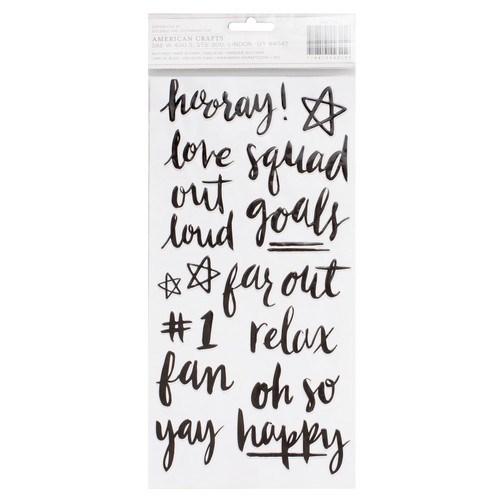 AMERICAN CRAFTS
588 W. 400 S. STE. 300, LINDON, UT 84042
hooray!
love
squad
out
goals
loud
far out
#1
relax
fan
oh so
yay
happy